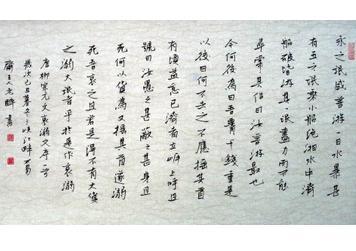 永之氓咸善游一日水暴甚
有五六氓乘小船绝湘水中濟
船破皆游其一氓盡力而不能
尋常其侣曰汝善游最也
今何後為曰吾腰千錢重是
以後曰何不去之不應摇其首
有頃益怠已濟者立岸上呼且
號曰汝愚之甚蔽之甚身且
死何以貨為又摇其首遂溺
死吾哀之且若是得不有大貨
之溺大氓者乎於是作哀溺
唐柳宗元哀溺文序